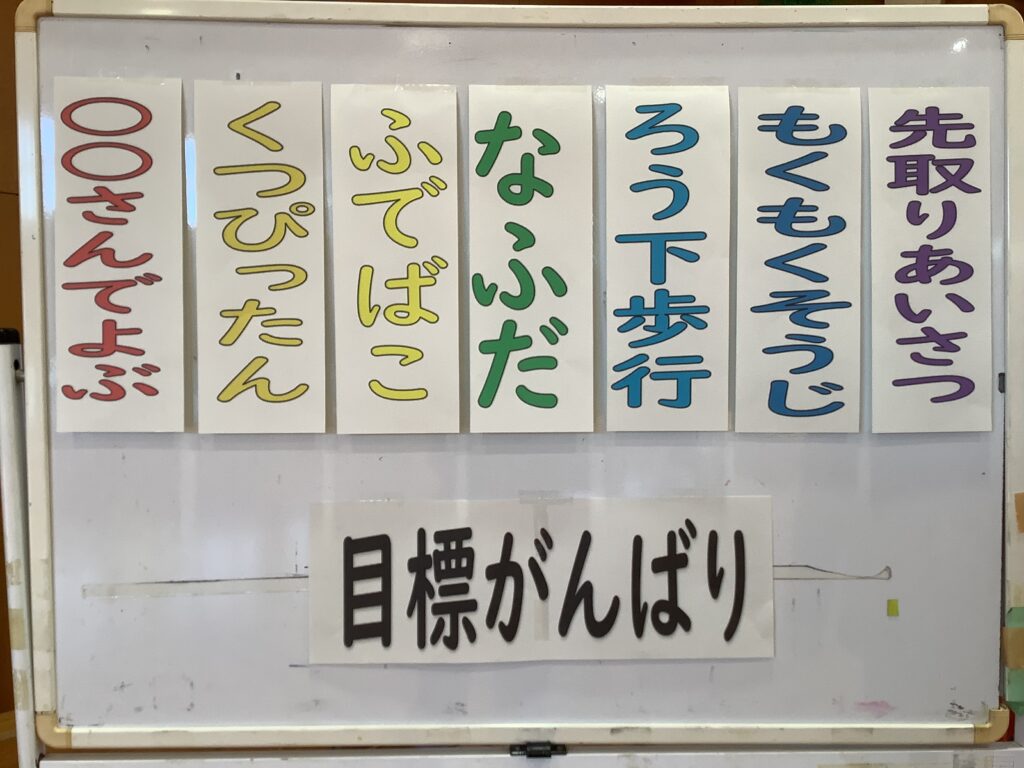 先取りあいさつ
もくもくそうじ
ろう下歩行
なふだ
ふでばこ
くつぴったん
〇〇さんでよぶ
目標がんばり